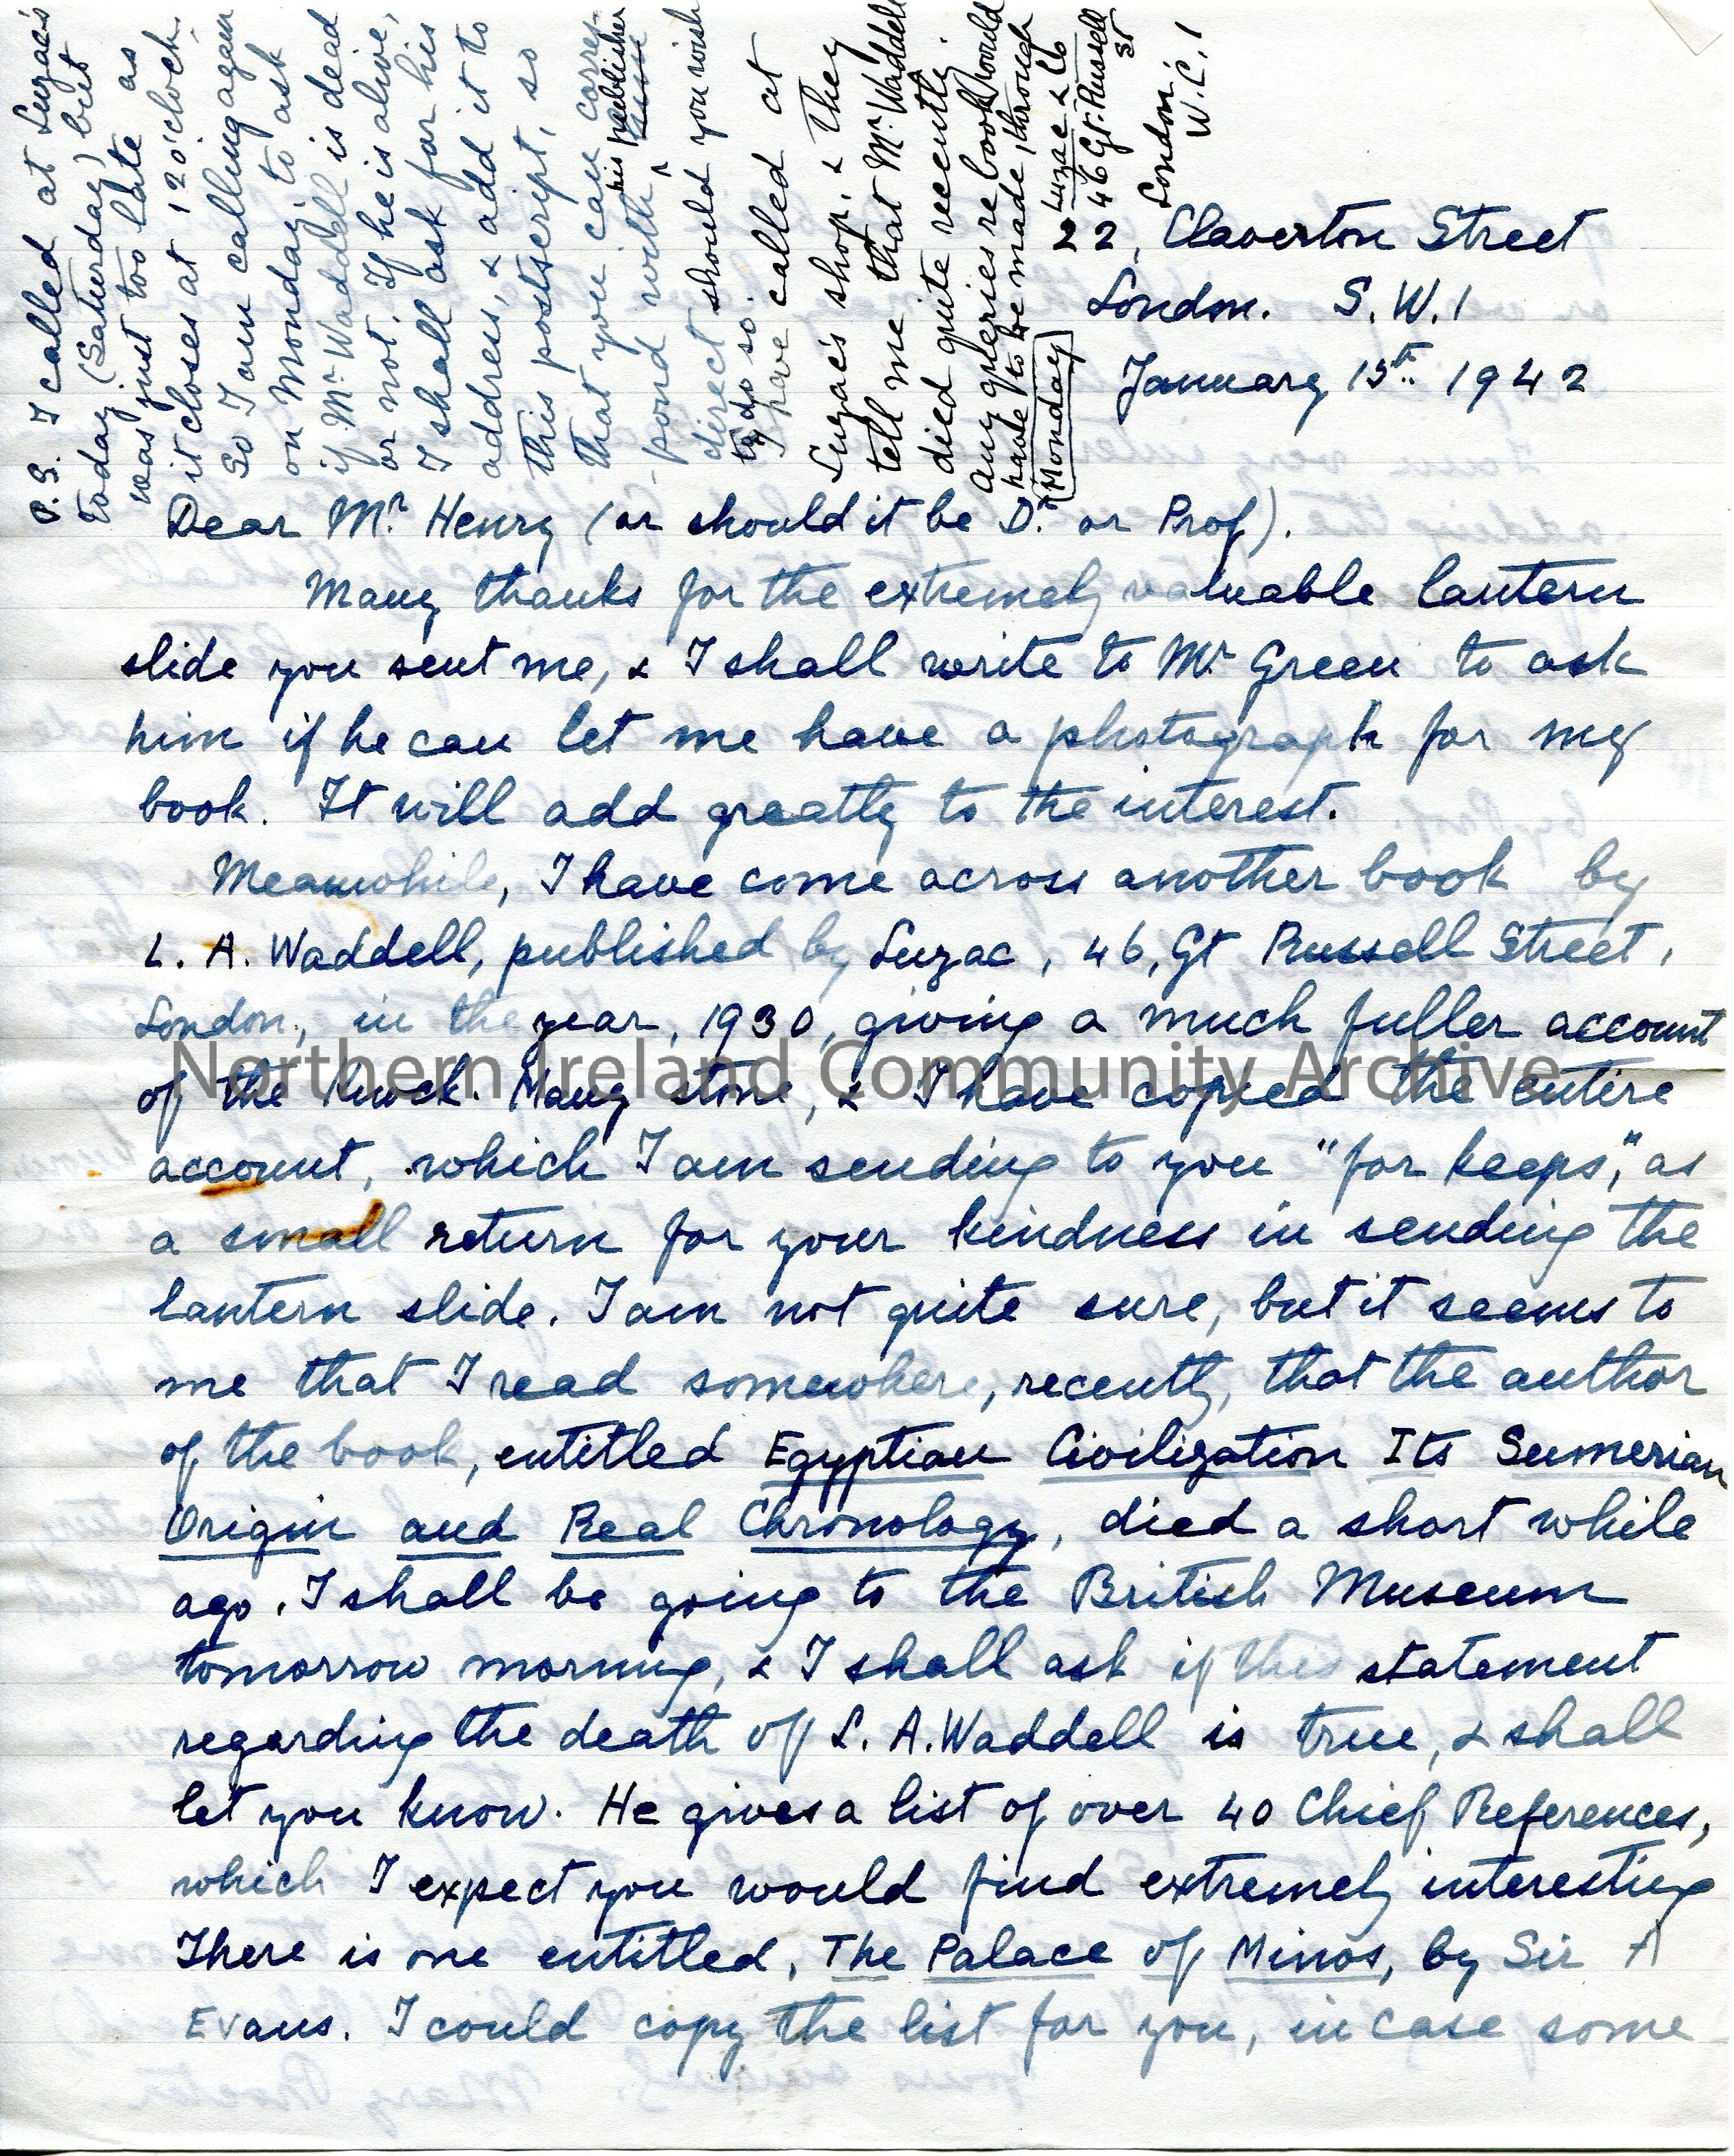 22, Claverton Street
London. S.W.1
January 15th. 1942
Dear Mr. Henry (or should it be Dr. or Prof).
Many thanks for the extremely valuable lantern
slide you sent me, & I shall write to Mr. Green to ask
him if he can let me have a photograph for my
book. It will add greatly to the interest.
Meanwhile, I have come across another book by
L. A. Waddell, published by Luzac, 46, Gt Russell Street,
London, in the year, 1930, giving a much fuller account
of the Knock. Many stone, & I have copied the entire
account, which I am sending to you "for keeps," as
a small return for your kindness in sending the
lantern slide. I am not quite sure, but it seems to
me that I read somewhere, recently, that the author
of the book, entitled Egyptian Civilization Its Sumerian
Origin and Real Chronology, died a short while
ago. I shall be going to the British Museum
tomorrow morning, & I shall ask if this statement
regarding the death of L. A. Waddell is true, & shall
let you know. He gives a list of over 40 Chief References,
which I expect you would find extremely interesting
There is one entitled, The Palace of Minos, by Sir A
Evans. I could copy the list for you, in case some
P.S. I called at Luzac's
today (Saturday) but
was just too late as
it closes at 12 o'clock.
So I am calling again
on Monday, to ask
if Mr. Waddell is dead
or not. If he is alive,
I shall ask for his
address, & add it to
this postscript, so
that you can corres-
pond with his publisher
direct should you wish
to do so.
I have called at
Luzac's shop, & they
tell me that Mr. Waddell
died quite recently.
Any queries re book would
have to be made, through
Luzac & Co
46 Gt. Russell St
London.
W.C.1
(Monday)
Northern Ireland Community Archive